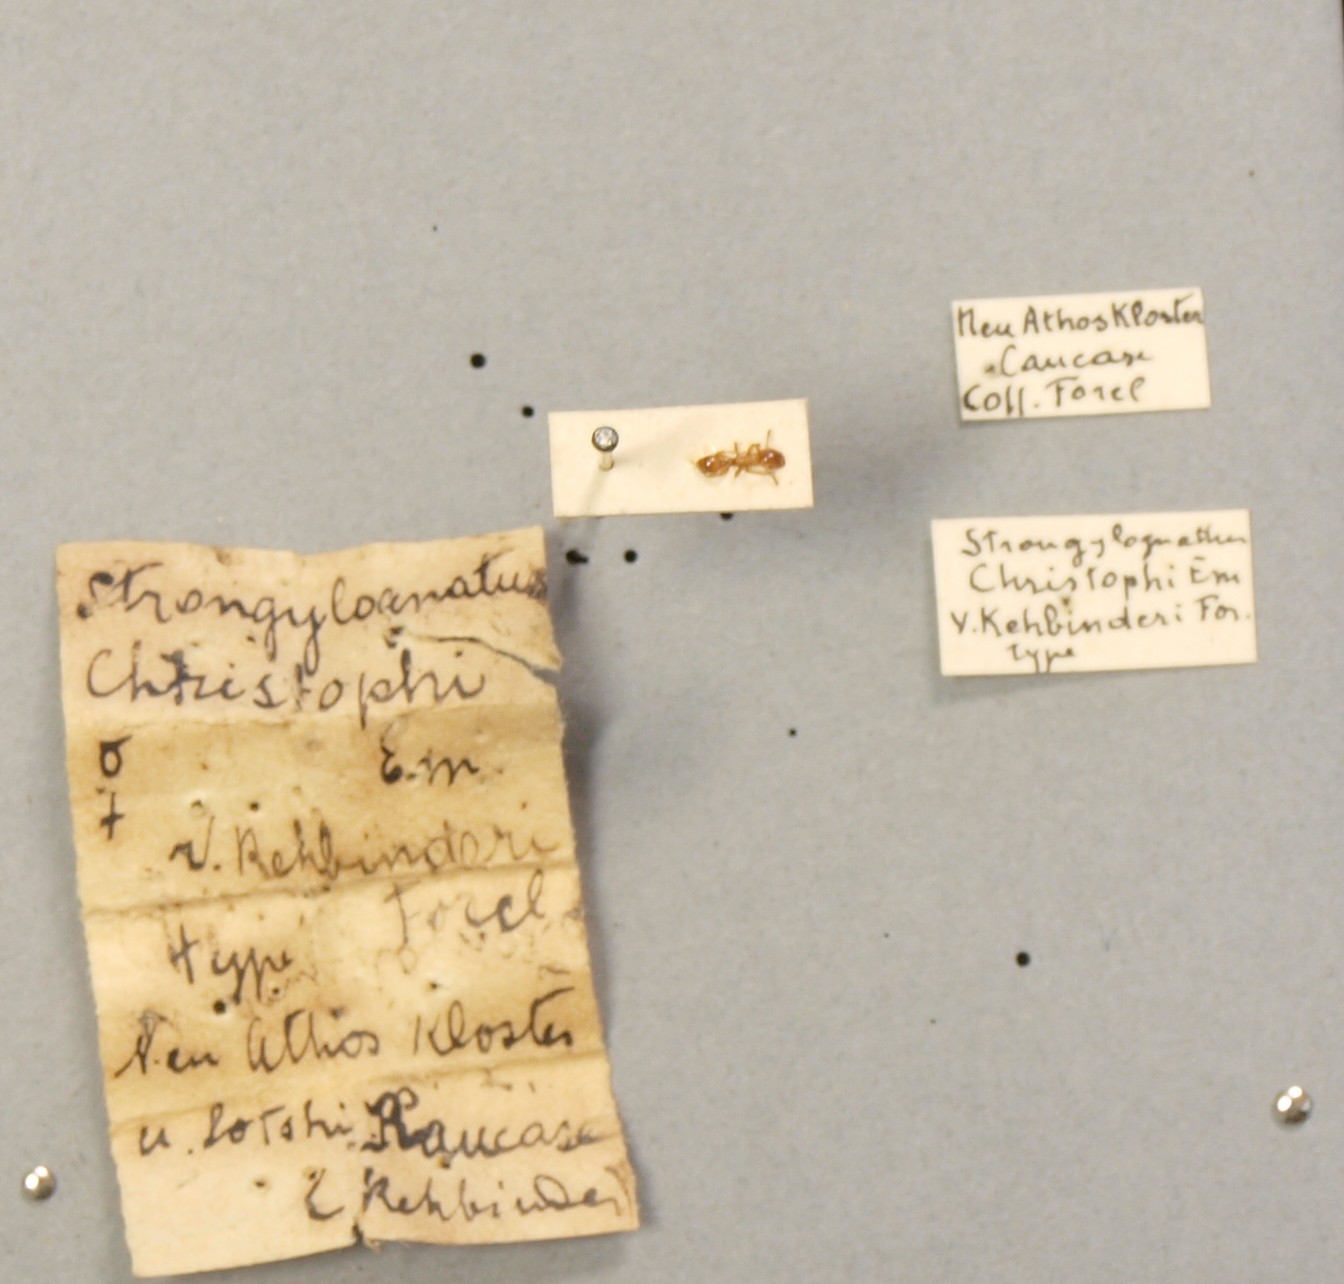 Neu Athos Kloster
Caucase
Coll. Forel
Strongylognathus
Christophi Em
v. Rehbinderi For.
type
Strongylognatus
Christophi
☿ Em
v. Rehbinderi
Forel
type
Neu Athos Kloster
u. Sotshi Kaucase
Rehbinder